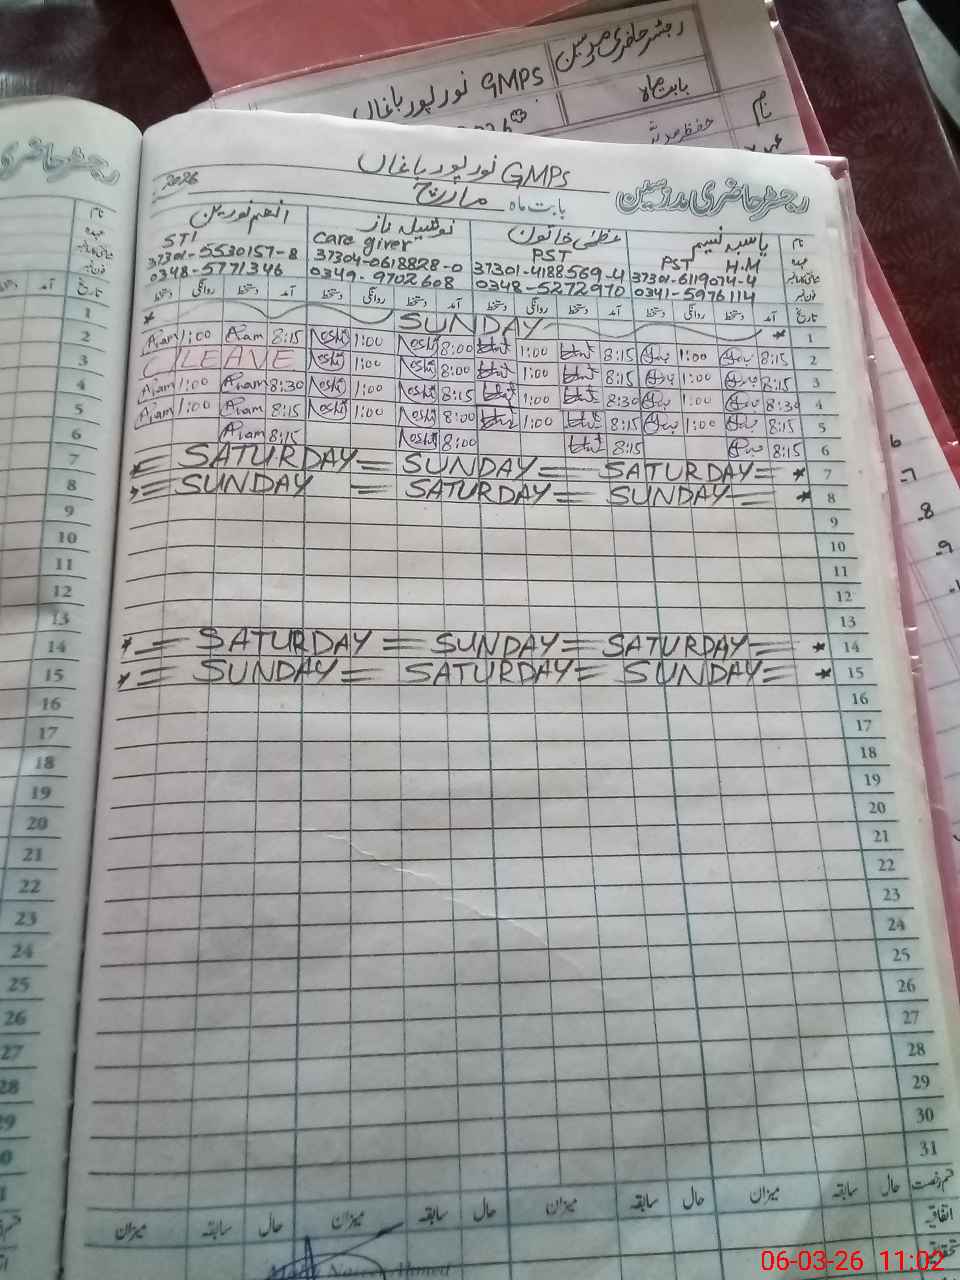 رجسٹر حاضری مدرسین
GMPS نور پور باغاں
بابت ماہ
نام
GMPS نور پور باغاں
رجسٹر حاضری مدرسین
بابت ماہ مارچ 2026
نام یاسمہ نسیم عظمیٰ خاتون نوشیلہ ناز انعم نورین
PST H.M PST Care giver STI
37301-6119074-4 37301-4188569-4 37304-0618828-0 37301-5530157-8
0341-5976114 0348-5272970 0349-9702608 0348-5771346
تاریخ آمد دستخط روانگی دستخط آمد دستخط روانگی دستخط آمد دستخط روانگی دستخط آمد دستخط روانگی دستخط
1 * SUNDAY *
2 8:15 1:00 8:15 1:00 8:00 1:00 8:15 1:00
3 8:15 1:00 8:15 1:00 8:00 1:00 LEAVE
4 8:30 1:00 8:30 1:00 8:15 1:00 8:30 1:00
5 8:15 1:00 8:15 1:00 8:00 1:00 8:15 1:00
6 8:15 8:15 8:00 8:15
* = SATURDAY = SUNDAY = SATURDAY = * 7
* = SUNDAY = SATURDAY = SUNDAY = * 8
9
10
11
12
13
* = SATURDAY = SUNDAY = SATURDAY = * 14
* = SUNDAY = SATURDAY = SUNDAY = * 15
16
17
18
19
20
21
22
23
24
25
26
27
28
29
30
31
قسم رخصت حال سابقہ میزان حال سابقہ میزان حال سابقہ میزان حال سابقہ میزان
اتفاقیہ
06-03-26 11:02